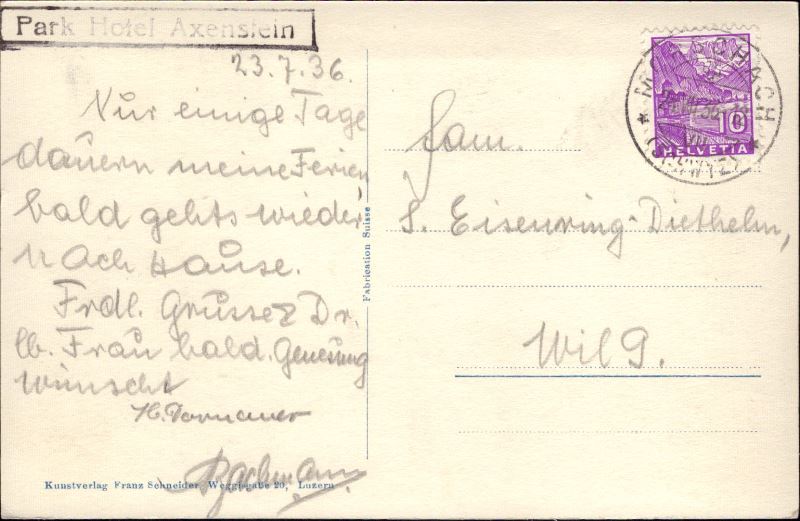 Park Hotel Axenstein
23.7.36.
Nur einige Tage
dauern meine Ferien
bald gehts wieder
nach Hause.
Frdl. Grüsse & Dr.
lb. Frau bald. Genesung
wünscht
Kunstverlag Franz Schneider, Weggisgaße 20, Luzern
Fabrication Suisse
MORSCHACH
(SCHWYZ)
10
HELVETIA
Fam.
S. Eisenring-Diethelm,
Wil G.